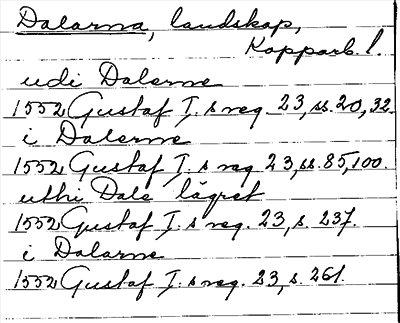 Dalarna, landskap,
Kopparb. l.
udi Dalarne
1552 Gustaf I. s reg. 23, ss. 20, 32.
i Dalarne
1552 Gustaf I. s reg 23, ss. 85, 100.
uthi Dale lägret
1552 Gustaf I. s reg. 23, s. 237.
i Dalarne
1552 Gustaf I. s reg. 23, s. 261.